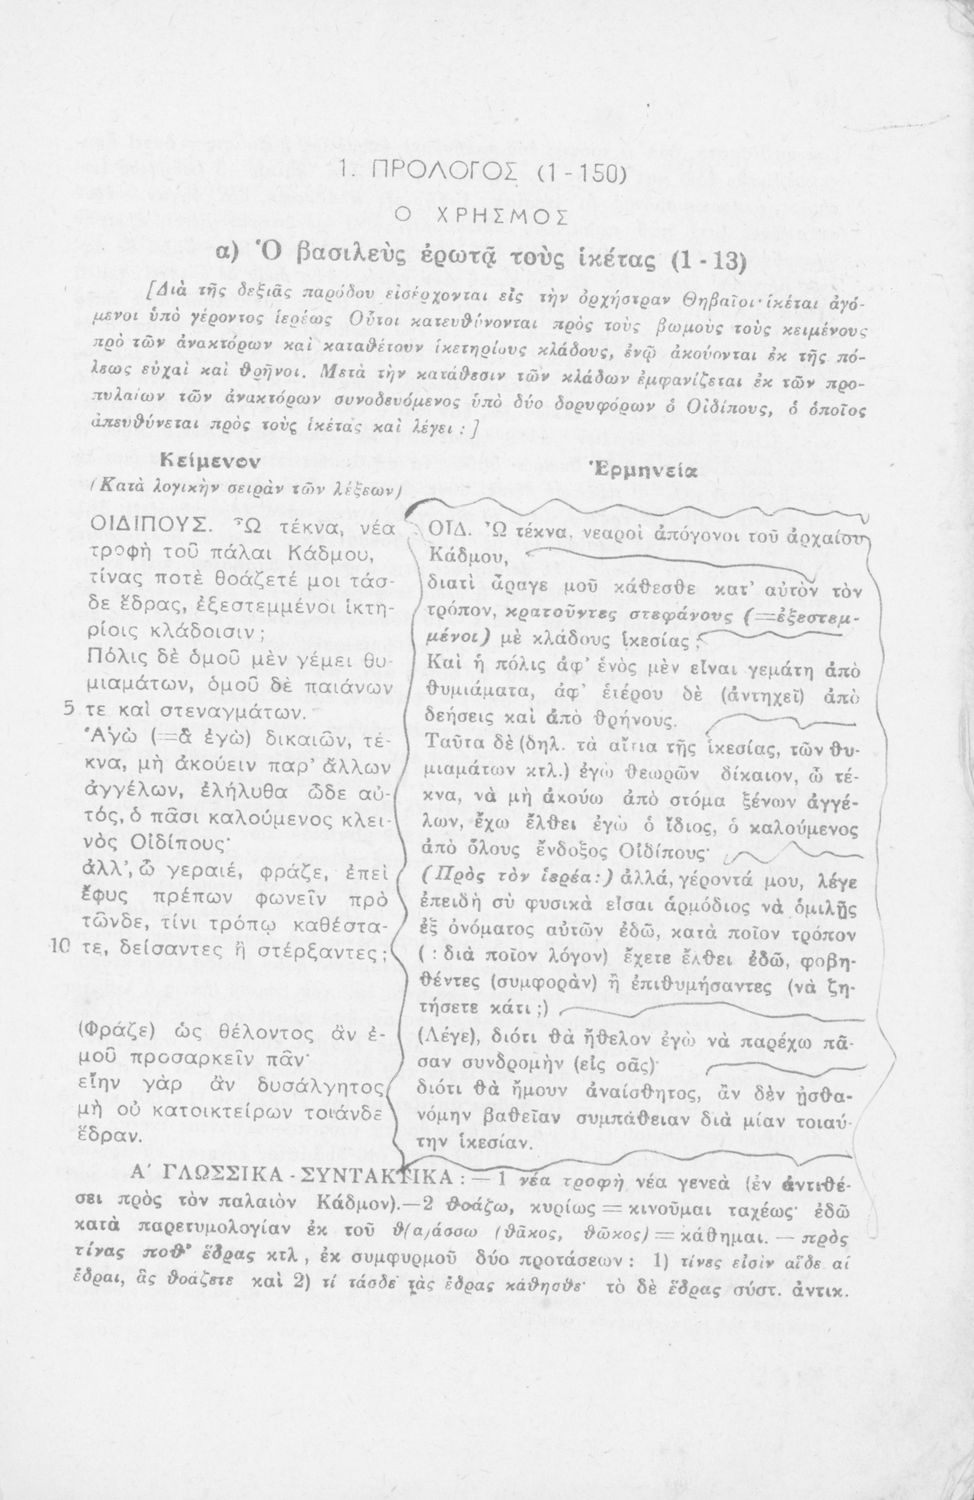 1. ΠΡΟΛΟΓΟΣ (1 - 150)
Ο ΧΡΗΣΜΟΣ
α) Ὁ βασιλεὺς ἐρωτᾷ τοὺς ἱκέτας (1 - 13)
[Διὰ τῆς δεξιᾶς παρόδου εἰσέρχονται εἰς τὴν ὀρχήστραν Θηβαῖοι ἱκέται ἀγό-
μενοι ὑπὸ γέροντος ἱερέως Οὗτοι κατευθύνονται πρὸς τοὺς βωμοὺς τοὺς κειμένους
πρὸ τῶν ἀνακτόρων καὶ καταθέτουν ἱκετηρίους κλάδους, ἐνῷ ἀκούονται ἐκ τῆς πό-
λεως εὐχαὶ καὶ θρῆνοι. Μετὰ τὴν κατάθεσιν τῶν κλάδων ἐμφανίζεται ἐκ τῶν προ-
πυλαίων τῶν ἀνακτόρων συνοδευόμενος ὑπὸ δύο δορυφόρων ὁ Οἰδίπους, ὁ ὁποῖος
ἀπευθύνεται πρὸς τοὺς ἱκέτας καὶ λέγει : ]
Κείμενον
(Κατὰ λογικὴν σειρὰν τῶν λέξεων)
ΟΙΔΙΠΟΥΣ. Ὦ τέκνα, νέα
τροφὴ τοῦ πάλαι Κάδμου,
τίνας ποτὲ θοάζετέ μοι τάσ-
δε ἕδρας, ἐξεστεμμένοι ἱκτη-
ρίοις κλάδοισιν ;
Πόλις δὲ ὁμοῦ μὲν γέμει θυ-
μιαμάτων, ὁμοῦ δὲ παιάνων
5 τε καὶ στεναγμάτων.
Ἁγὼ (=ἃ ἐγὼ) δικαιῶν, τέ-
κνα, μὴ ἀκούειν παρ' ἄλλων
ἀγγέλων, ἐλήλυθα ὧδε αὐ-
τός, ὁ πᾶσι καλούμενος κλει-
νὸς Οἰδίπους·
ἀλλ', ὦ γεραιέ, φράζε, ἐπεὶ
ἔφυς πρέπων φωνεῖν πρὸ
τῶνδε, τίνι τρόπῳ καθέστα-
10 τε, δείσαντες ἢ στέρξαντες ;
(Φράζε) ὡς θέλοντος ἂν ἐ-
μοῦ προσαρκεῖν πᾶν·
εἴην γὰρ ἂν δυσάλγητος
μὴ οὐ κατοικτείρων τοιάνδε
ἕδραν.
Ἑρμηνεία
ΟΙΔ. Ὦ τέκνα, νεαροὶ ἀπόγονοι τοῦ ἀρχαίου
Κάδμου,
διατὶ ἆραγε μοῦ κάθεσθε κατ' αὐτὸν τὸν
τρόπον, κρατοῦντες στεφάνους (=ἐξεστεμ-
μένοι) μὲ κλάδους ἱκεσίας ;
Καὶ ἡ πόλις ἀφ' ἑνὸς μὲν εἶναι γεμάτη ἀπὸ
θυμιάματα, ἀφ' ἑτέρου δὲ (ἀντηχεῖ) ἀπὸ
δεήσεις καὶ ἀπὸ θρήνους.
Ταῦτα δὲ (δηλ. τὰ αἴτια τῆς ἱκεσίας, τῶν θυ-
μιαμάτων κτλ.) ἐγὼ θεωρῶν δίκαιον, ὦ τέ-
κνα, νὰ μὴ ἀκούω ἀπὸ στόμα ξένων ἀγγέ-
λων, ἔχω ἔλθει ἐγὼ ὁ ἴδιος, ὁ καλούμενος
ἀπὸ ὅλους ἔνδοξος Οἰδίπους·
(Πρὸς τὸν ἱερέα:) ἀλλά, γέροντά μου, λέγε
ἐπειδὴ σὺ φυσικὰ εἶσαι ἁρμόδιος νὰ ὁμιλῇς
ἐξ ὀνόματος αὐτῶν ἐδῶ, κατὰ ποῖον τρόπον
( : διὰ ποῖον λόγον) ἔχετε ἔλθει ἐδῶ, φοβη-
θέντες (συμφορὰν) ἢ ἐπιθυμήσαντες (νὰ ζη-
τήσετε κάτι ;)
(Λέγε), διότι θὰ ἤθελον ἐγὼ νὰ παρέχω πᾶ-
σαν συνδρομὴν (εἰς σᾶς)·
διότι θὰ ἤμουν ἀναίσθητος, ἂν δὲν ᾐσθα-
νόμην βαθεῖαν συμπάθειαν διὰ μίαν τοιαύ-
την ἱκεσίαν.
Α' ΓΛΩΣΣΙΚΑ - ΣΥΝΤΑΚΤΙΚΑ : — 1 νέα τροφὴ νέα γενεὰ (ἐν ἀντιθέ-
σει πρὸς τὸν παλαιὸν Κάδμον).—2 θοάζω, κυρίως = κινοῦμαι ταχέως· ἐδῶ
κατὰ παρετυμολογίαν ἐκ τοῦ θ(α)άσσω (θᾶκος, θῶκος) = κάθημαι. — πρὸς
τίνας ποθ' ἕδρας κτλ , ἐκ συμφυρμοῦ δύο προτάσεων : 1) τίνες εἰσὶν αἵδε αἱ
ἕδραι, ἃς θοάζετε καὶ 2) τί τάσδε τὰς ἕδρας κάθησθε· τὸ δὲ ἕδρας σύστ. ἀντικ.